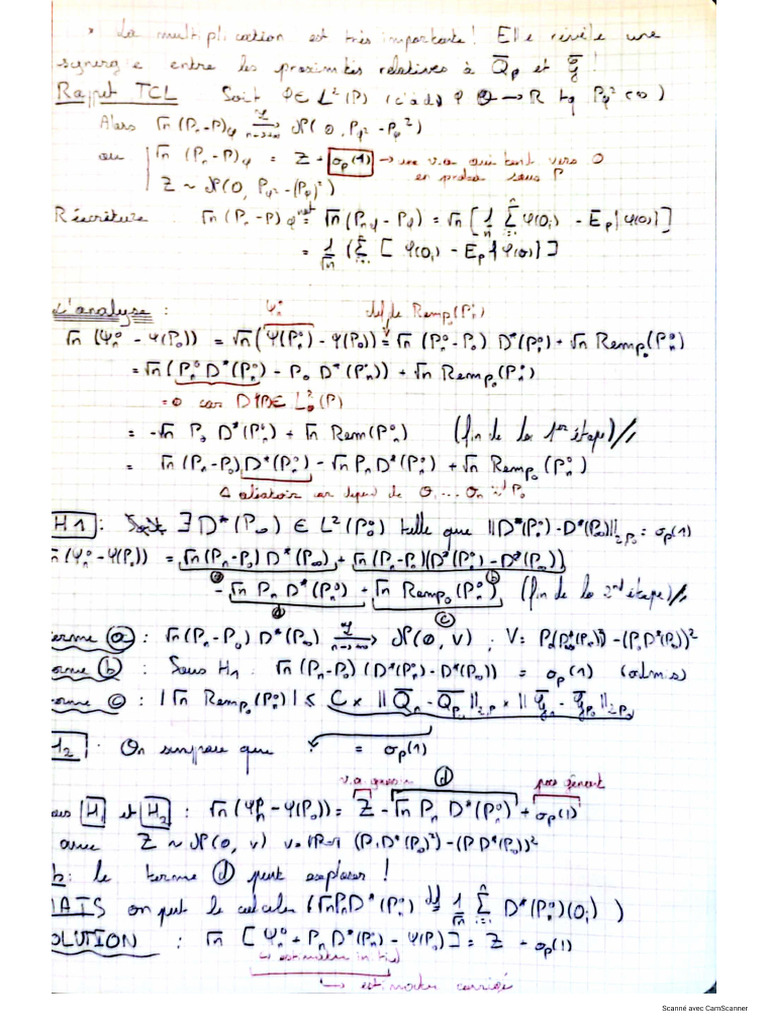 * La multiplication est très importante ! Elle révèle une
synergie entre les proximités relatives à Q̄_P et ḡ !
Rappel TCL Soit φ ∈ L²(P) (c'à d φ Θ → R tq Pφ² < ∞)
Alors √n (P_n-P)φ →^L_{n→∞} N(0, Pφ² - Pφ²)
ou | √n (P_n-P)φ = Z + o_p(1) → une v.a qui tend vers 0
en proba sous P
| Z ~ N(0, Pφ² - (Pφ)²)
Réécriture √n (P_n - P)φ =^{not} √n (P_nφ - Pφ) = √n [1/n Σ_{i=1}^n φ(O_i) - E_P{φ(O)}]
= 1/√n (Σ_{i=1}^n [φ(O_i) - E_P{φ(O)}]
L'analyse : Ψ_n° def de Rem_{P_0}(P_n°)
√n (Ψ_n° - Ψ(P_0)) = √n (Ψ(P_n°) - Ψ(P_0)) = √n (P_n° - P_0) D*(P_n°) + √n Rem_{P_0}(P_n°)
= √n (P_n° D*(P_n°) - P_0 D*(P_n°)) + √n Rem_{P_0}(P_n°)
= 0 car D*(P) ∈ L_0²(P)
= -√n P_0 D*(P_n°) + √n Rem(P_n°) (fin de la 1er étape) //
= √n (P_n-P_0) D*(P_n°) - √n P_n D*(P_n°) + √n Rem_{P_0}(P_n°)
aléatoire car dépend de O_1 ... O_n iid P_0
H1 : ∃ D*(P_∞) ∈ L²(P_0) telle que ||D*(P_n°) - D*(P_∞)||_{2,P_0} = o_p(1)
(Ψ_n° - Ψ(P_0)) = √n (P_n-P_0) D*(P_∞) + √n (P_n-P_0)(D*(P_n°) - D*(P_∞))
ⓐ ⓑ
- √n P_n D*(P_n°) + √n Rem_{P_0}(P_n°) (fin de la 2nd étape) //
ⓓ ⓒ
terme ⓐ : √n (P_n - P_0) D*(P_∞) →^L_{n→∞} N(0, V) ; V = P_0(D*(P_∞)²) - (P_0 D*(P_∞))²
terme ⓑ : Sous H1 : √n (P_n-P_0) (D*(P_n°) - D*(P_∞)) = o_p(1) (admis)
terme ⓒ : |√n Rem_{P_0}(P_n°)| ≤ C × ||Q̄_n - Q̄_{P_0}||_{2,P} × ||ḡ_n - ḡ_{P_0}||_{2,P_0}
H2 : On suppose que = o_p(1)
v.a gaussi ⓓ pas gênant
H1 et H2 : √n (Ψ_n° - Ψ(P_0)) = Z - √n P_n D*(P_n°) + o_p(1)
avec Z ~ N(0, v) (P D*(P_∞)²) - (P D*(P_∞))²
le terme ⓓ peut exploser !
MAIS on peut le calculer (√n P_n D*(P_n°) =^{def} 1/√n Σ_{i=1}^n D*(P_n°)(O_i))
SOLUTION : √n [Ψ_n° + P_n D*(P_n°) - Ψ(P_0)] = Z + o_p(1)
↳ estimateur initial
↳ estimateur corrigé
Scanné avec CamScanner